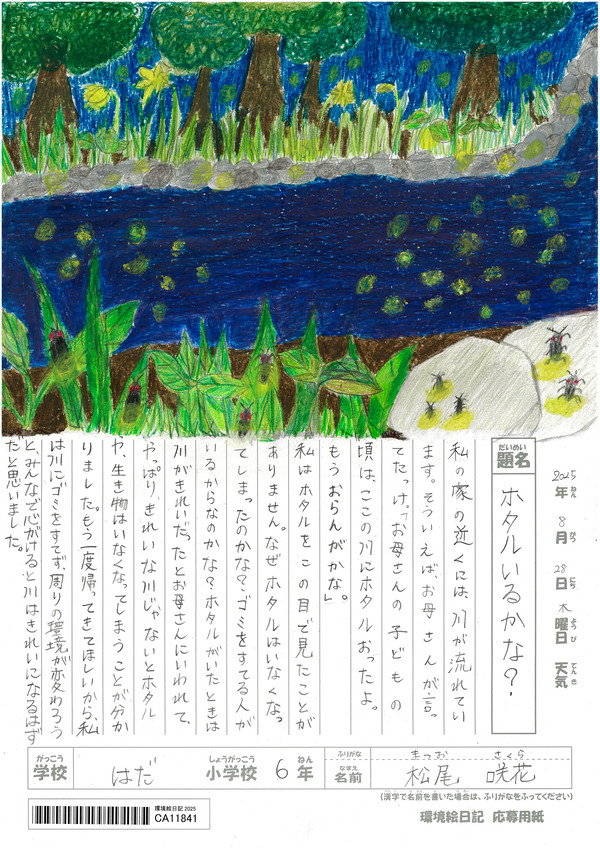 2025年ねん 8月がつ 28日にち 木曜日ようび 天気てんき
題名だいめい ホタルいるかな？
私の家の近くには、川が流れてい
ます。そういえば、お母さんが言っ
てたっけ。「お母さんの子どもの
頃は、ここの川にホタルおったよ。
もうおらんがかな」
私はホタルをこの目で見たことが
ありません。なぜホタルはいなくなっ
てしまったのかな？ゴミをすてる人が
いるからなのかな？ホタルがいたときは
川がきれいだったとお母さんにいわれて、
やっぱり、きれいな川じゃないとホタル
や、生き物はいなくなってしまうことが分か
りました。もう一度帰ってきてほしいから、私
は川にゴミをすてず、周りの環境が変わろう
と、みんなで心がけると川はきれいになるはず
だと思いました。
学校がっこう はだ 小学校しょうがっこう 6年ねん
ふりがな まつお さくら
名前なまえ 松尾 咲花
(漢字で名前を書いた場合は、ふりがなをふってください)
環境絵日記2025
CA11841
環境絵日記 応募用紙